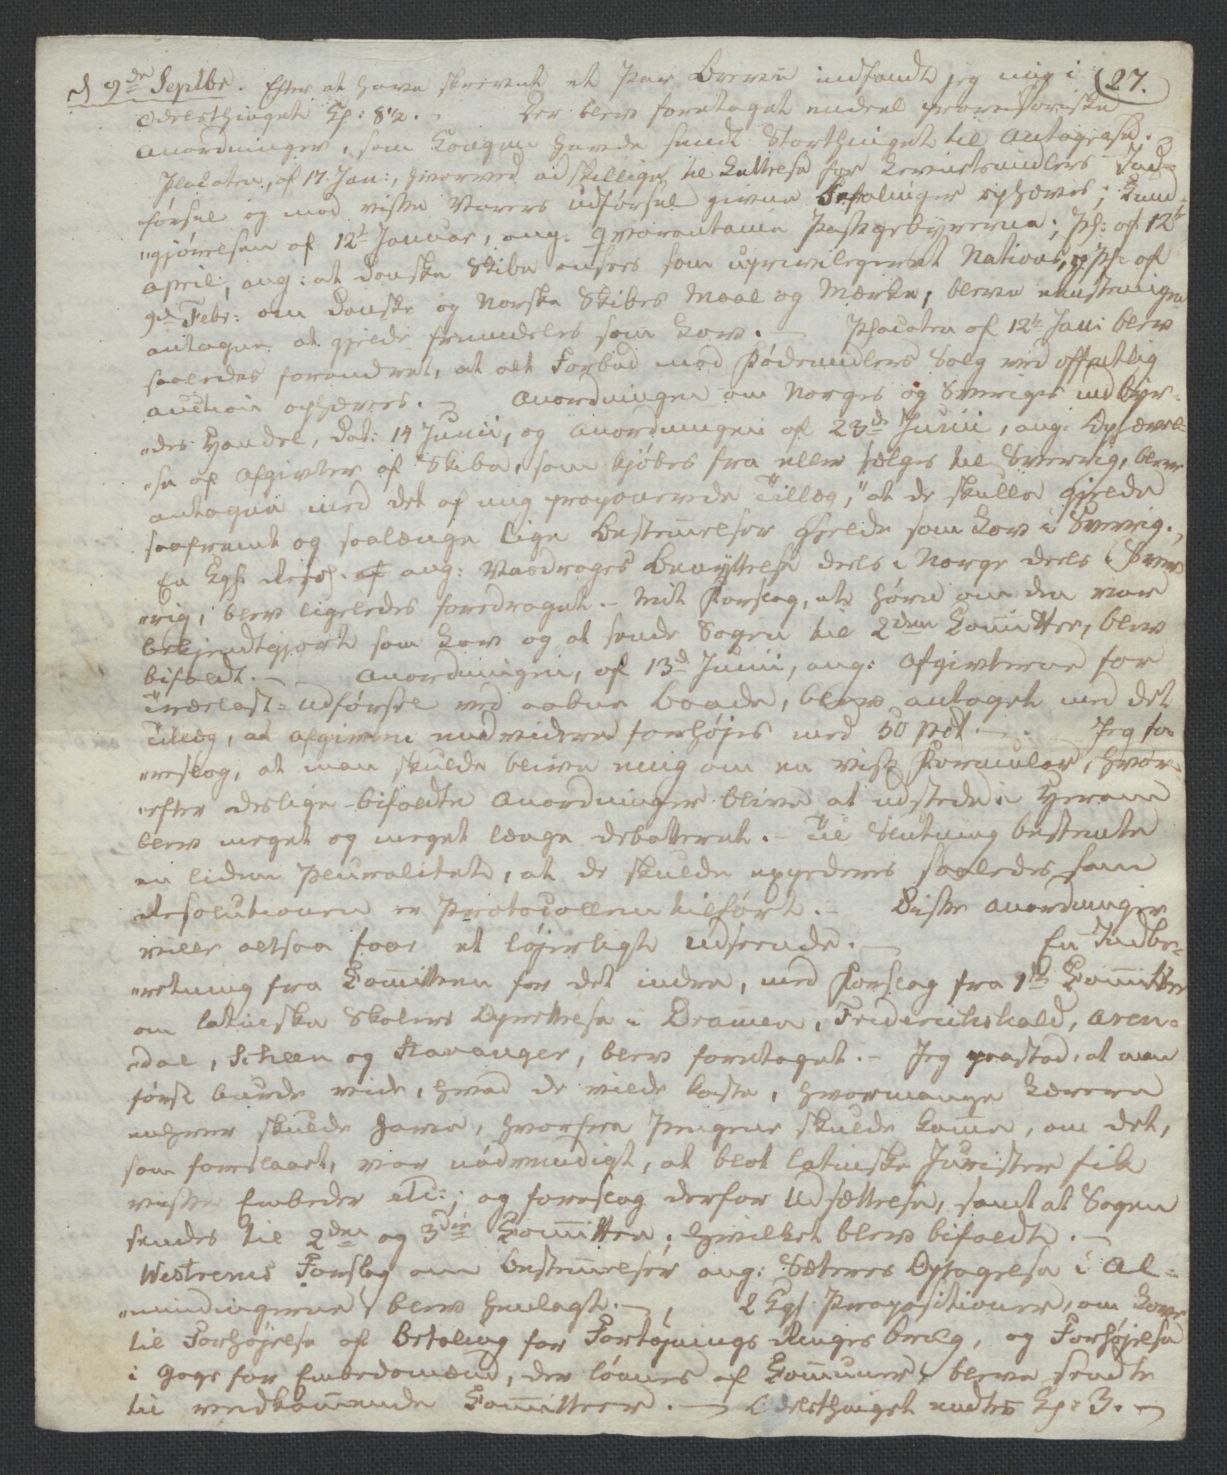 d 9de Septbr. Efter at have skrevet et Par Breve indfandt jeg mig i 27.
Odelsthinget Kl: 8½. - Der blev foretaget endeel provisoriske
Anordninger, som Kongen havde sendt Storthinget til Antagelse.
Placaten, af 17 Jan:, hvorved adskillige til Lettelse for Levnetsmidlers Ind-
„førsel og mod visse Varers Udførsel givne Befalinger ophæves; Kund-
„gjørelsen af 12te Januar, ang: Qvarantaine Passagebyrerne; Pl: af 12te
April, ang: at danske Skibe ansees som upriviligeret Nations, og Pl: af
9de Febr: om danske og Norske Skibes Maal og Mærke, bleve eenstemmigen
antagne at gjelde fremdeles som Lov. - Placaten af 12te Jan: blev
saaledes forandret, at alt Forbud mod Fødemidlers Salg ved offentlig
Auction ophæves. - Anordningen om Norges og Sveriges indbyr-
„des Handel, Dat: 14 Junii, og Anordningen af 23de Junii, ang: Ophævel-
„se af Afgivter af Skibe, som kjøbes fra eller sælges til Sverrig, bleve
antagne med det af mig proponerede Tillæg, "at de skulle gjelde
saafremt og saalænge lige Bestemelser gjelde som Lov i Sverrig.„
En Kgl. Resol. af ang: Vasdrages Benyttelse deels i Norge deels i Sver-
„rig, blev ligeledes foredraget. - Mit Forslag, at høre om den var
bekjendtgjort som Lov og at sende Sagen til 2den Comittee, blev
bifaldt. - Anordningen, af 13de Junii, ang: Afgivterne for
Trælast-Udførsel ved aabne Baade, blev antaget med det
Tillæg, at Afgivten endvidere forhøjes med 50 pCt. - Jeg fo-
„reslog, at man skulde blive enig om en vis Formular, hvor-
„efter deslige bifaldte Anordninger blive at udstede. Herom
blev meget og meget længe debatteret. - Til Slutning bestemte
en liden Pluralitet, at de skulde expederes saaledes som
Resolutionen er Protocollen tilført. - Disse Anordninger
ville altsaa faae et løjerligt Udseende. - En Indbe-
„retning fra Comitteen for det indre, med Forslag fra 1te Comittee
om latinske Skolers Oprettelse i Dramen, Friderichshald, Aren-
„dal, Scheen og Stavanger, blev foretaget. - Jeg paastod, at man
først burde vide, hvad de vilde koste, hvormange Lærere
enhver skulde have, hvorfra Pengene skulde kome, om det,
som foreslaaet, var nødvendigt, at blot latinske Jurister fik
visse Embeder etc:; og foreslog derfor Udsættelse, samt at Sagen
sendes til 2den og 3die Comittee; hvilket blev bifaldt. -
Westrems Forslag om Bestemelser ang: Sæteres Optagelse i Al-
„mindingerne blev henlagt. - 2 Kgl: Propositioner, om Love
til Forhøjelse af Betaling for Fortøjnings Ringes Brug, og Forhøjelse
i Gage for Embedsmænd, der lønnes af Comuner, bleve sendte
til vedkomende Comitteer. - Odelsthinget endtes Kl: 3. -